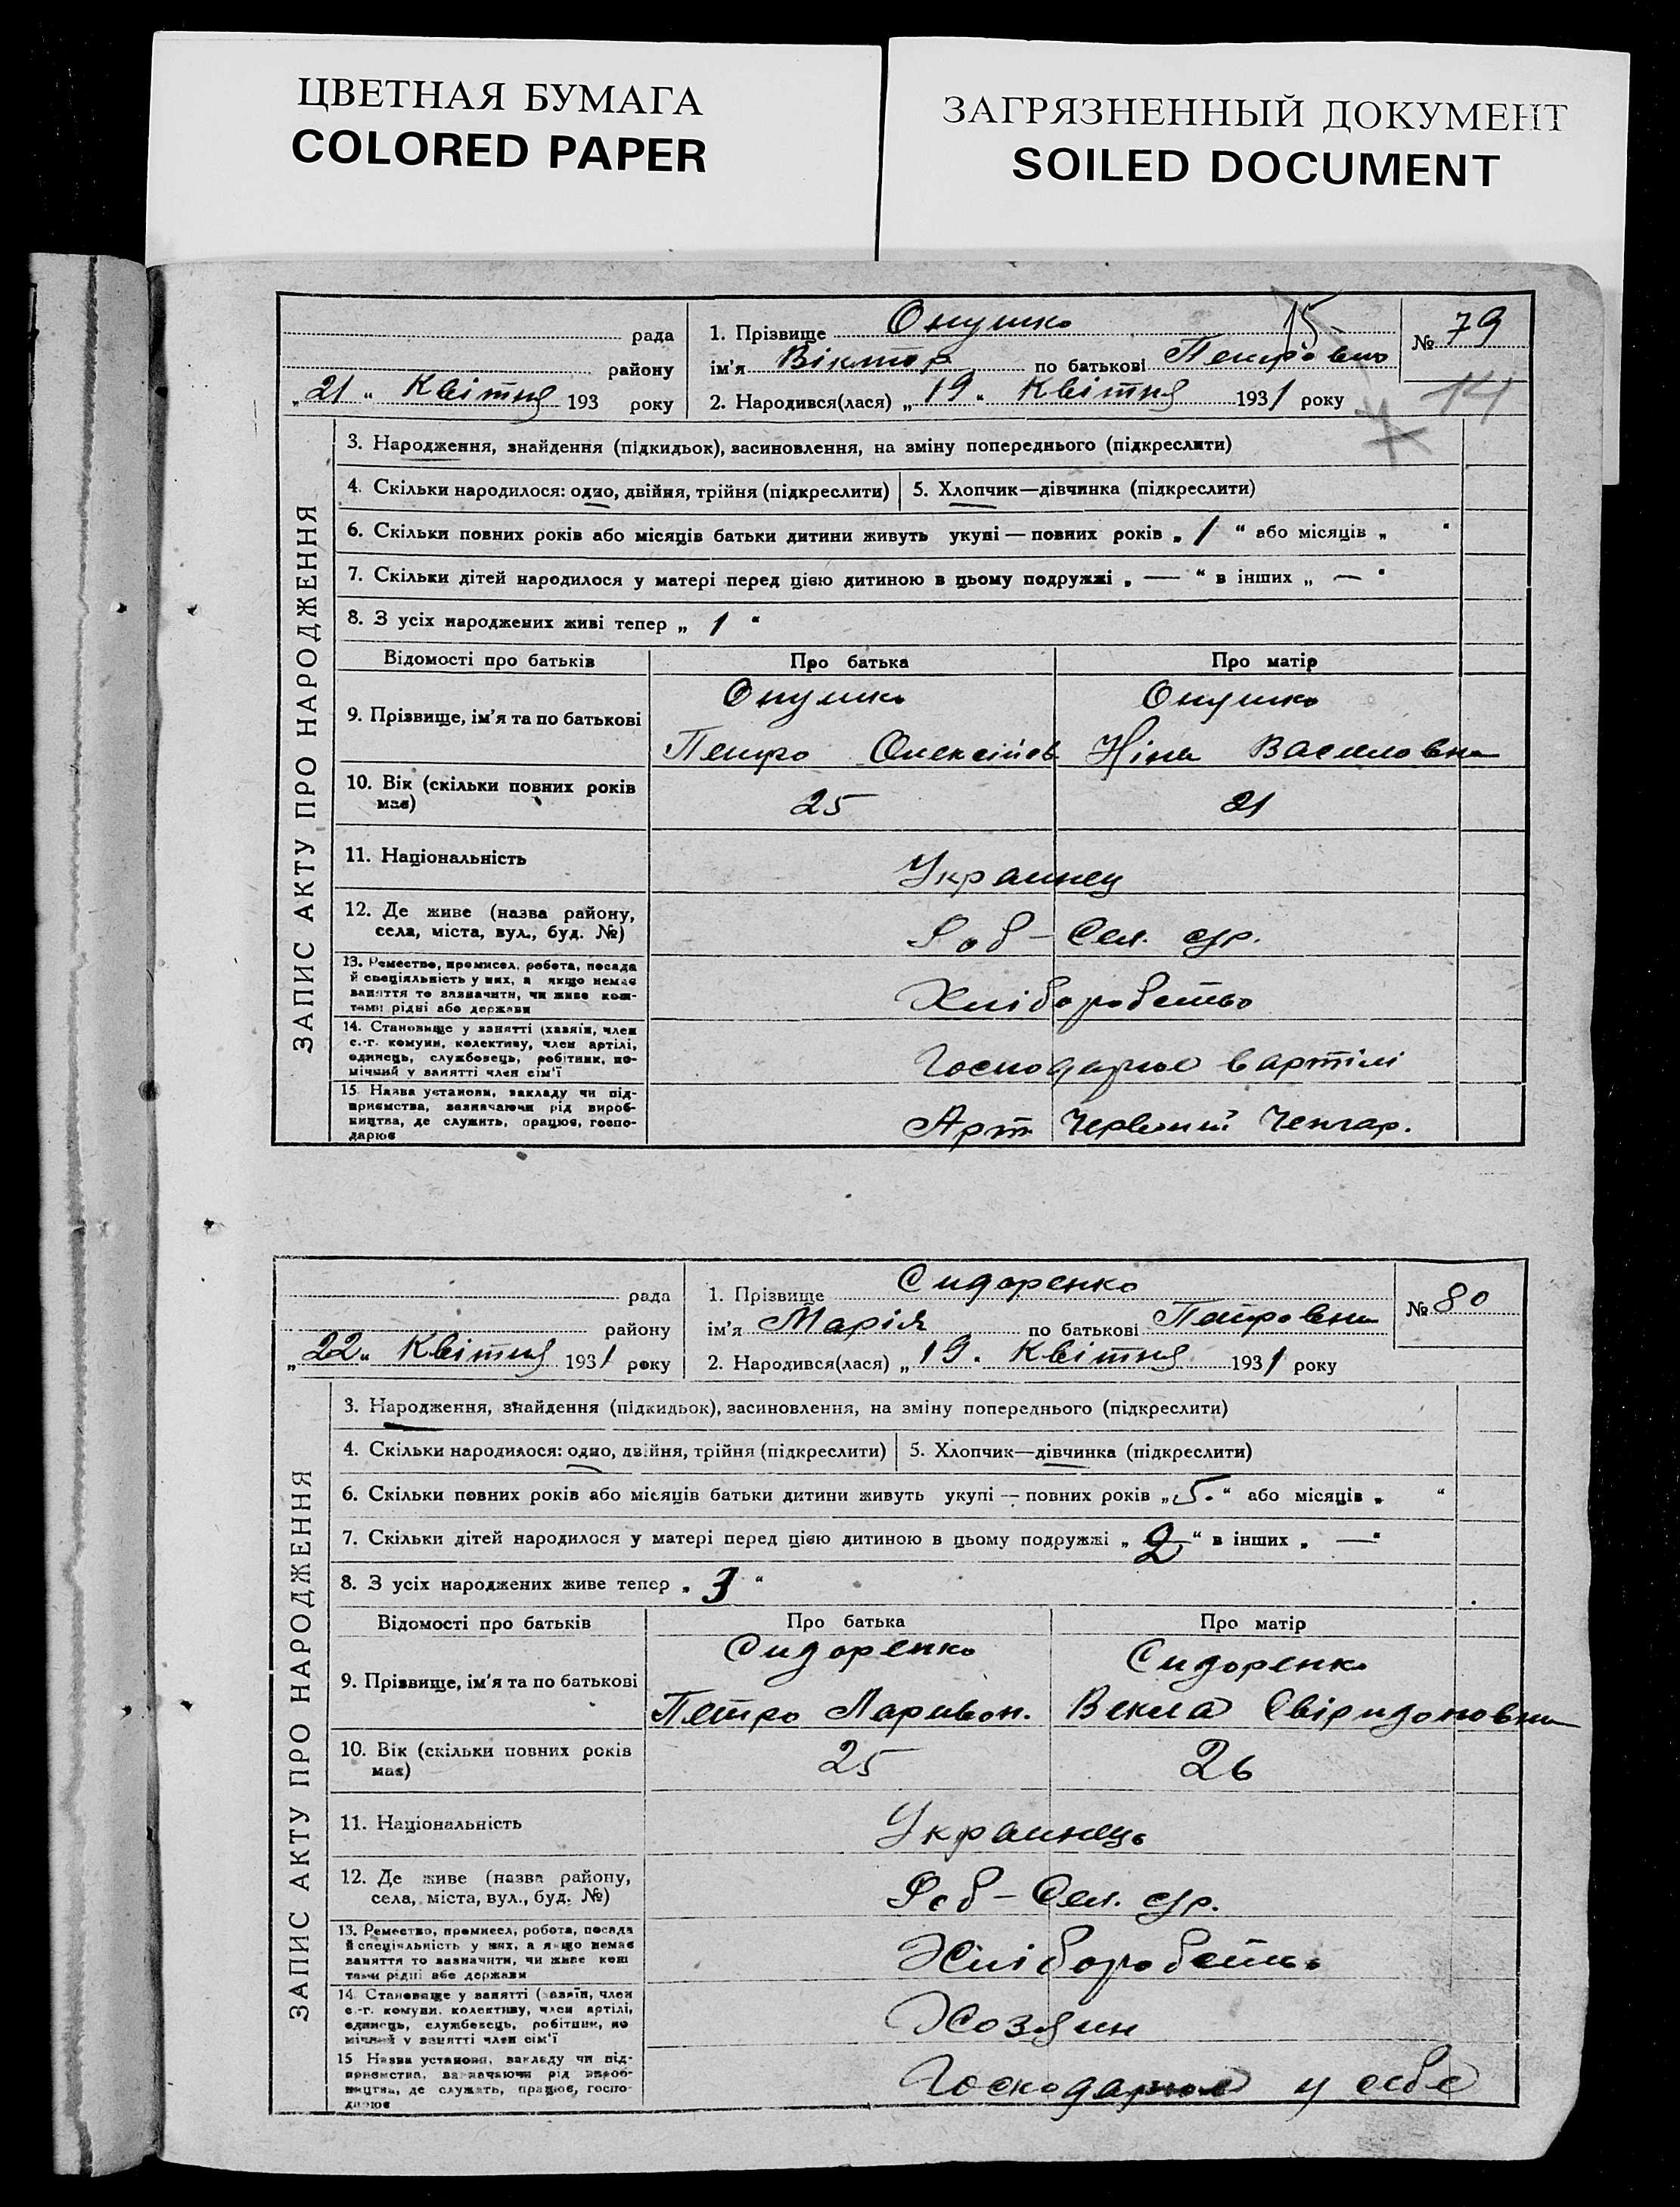 ЦВЕТНАЯ БУМАГА
COLORED PAPER
ЗАГРЯЗНЕННЫЙ ДОКУМЕНТ
SOILED DOCUMENT
рада
району
„21“ Квітня 193 року
1. Прізвище Онушко 15
ім'я Віктор по батькові Петрович
2. Народився(лася) „19“ Квітня 1931 року
№ 79
14
ЗАПИС АКТУ ПРО НАРОДЖЕННЯ
3. Народження, знайдення (підкидьок), васиновлення, на зміну попереднього (підкреслити)
4. Скільки народилося: одно, двійня, трійня (підкреслити) 5. Хлопчик—дівчинка (підкреслити)
6. Скільки повних років або місяців батьки дитини живуть укупі — повних років „1“ або місяців „ “
7. Скільки дітей народилося у матері перед цією дитиною в цьому подружжі „—“ в інших „—“
8. З усіх народжених живі тепер „1“
Відомості про батьків Про батька Про матір
9. Прізвище, ім'я та по батькові
Онушко Онушко
Петро Олексійов Ніна Василовна
10. Вік (скільки повних років має) 25 21
11. Національність Украинец
12. Де живе (назва району,
села, міста, вул., буд. №) Роб-Сел. ср.
13. Ремество, промисел, робота, посада
й спеціяльність у них, а якщо немає
заняття то зазначити, чи живе кош-
тами рідні або держави
Хліборобство
14. Становище у занятті (хазяїн, член
с.-г. комуни, колективу, член артілі,
одинець, службовець, робітник, по-
мічний у занятті член сім'ї
Господарює в артілі
15. Назва установи, закладу чи під-
приємства, зазначаючи рід вироб-
ництва, де служить, працює, госпо-
дарює
Арт. Червоний Ченгар.
рада
району
„22“ Квітня 1931 року
1. Прізвище Сидоренко
ім'я Марія по батькові Петровна
2. Народився(лася) „19“ Квітня 1931 року
№ 80
ЗАПИС АКТУ ПРО НАРОДЖЕННЯ
3. Народження, знайдення (підкидьок), васиновлення, на зміну попереднього (підкреслити)
4. Скільки народилося: одно, двійня, трійня (підкреслити) 5. Хлопчик—дівчинка (підкреслити)
6. Скільки повних років або місяців батьки дитини живуть укупі — повних років „5.“ або місяців „ “
7. Скільки дітей народилося у матері перед цією дитиною в цьому подружжі „2“ в інших „—“
8. З усіх народжених живе тепер „3“
Відомості про батьків Про батька Про матір
9. Прізвище, ім'я та по батькові
Сидоренко Сидоренко
Петро Ларивон. Векла Свіридоновна
10. Вік (скільки повних років має) 25 26
11. Національність Украинець
12. Де живе (назва району,
села, міста, вул., буд. №) Роб-Сел. ср.
13. Ремество, промисел, робота, посада
й спеціяльність у них, а якщо немає
заняття то зазначити, чи живе кош
тами рідні або держави
Хліборобство
14. Становище у занятті (хазяїн, член
с.-г. комуни, колективу, член артілі,
одинець, службовець, робітник, по
мічний у занятті член сім'ї
Хозяин
15 Назва установи, закладу чи під-
приємства, зазначаючи рід вироб-
ництва, де служить, працює, госпо-
дарює
Господарює у себе